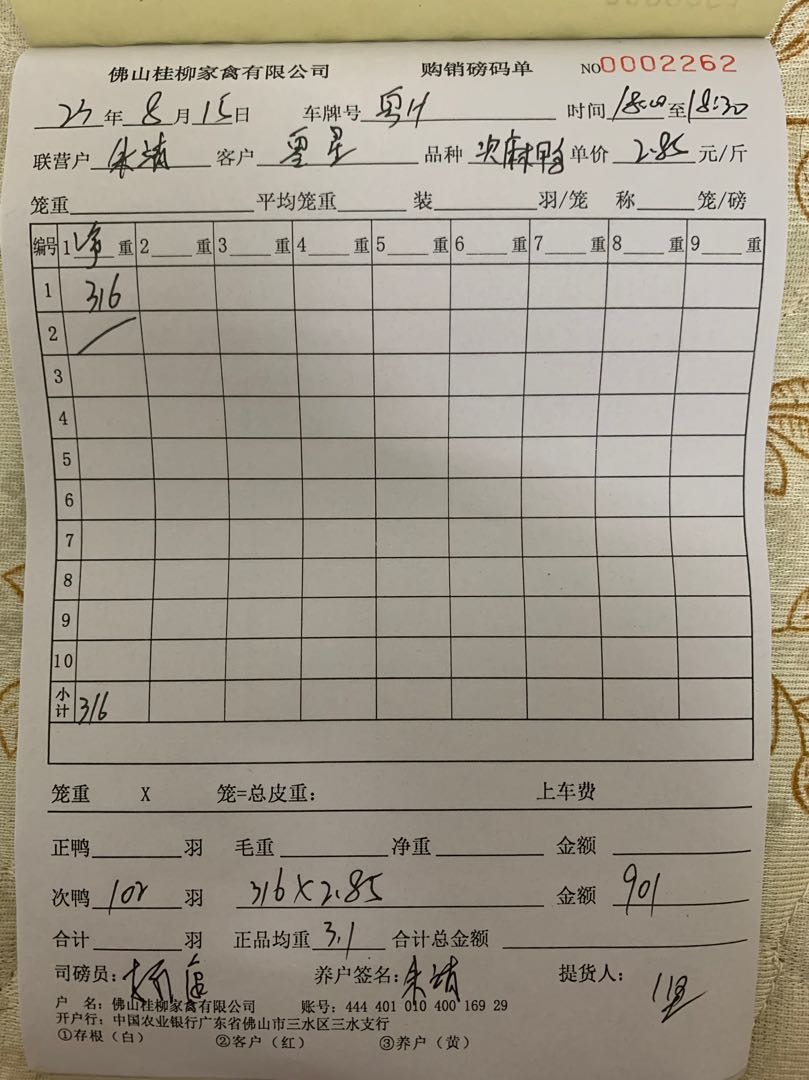 佛山桂柳家禽有限公司 购销磅码单 NO0002262
23年8月15日 车牌号 粤H 时间18:00至18:30
联营户 客户 粤星 品种 次麻鸭 单价 2.85 元/斤
笼重 平均笼重 装 羽/笼 称 笼/磅
编号 1净重 2 重 3 重 4 重 5 重 6 重 7 重 8 重 9 重
1 316
2
3
4
5
6
7
8
9
10
小计 316
笼重 X 笼=总皮重: 上车费
正鸭 羽 毛重 净重 金额
次鸭 102 羽 316×2.85 金额 901
合计 羽 正品均重 3.1 合计总金额
司磅员: 养户签名: 提货人:
户 名: 佛山桂柳家禽有限公司 账号: 444 401 010 400 169 29
开户行: 中国农业银行广东省佛山市三水区三水支行
①存根(白) ②客户(红) ③养户(黄)